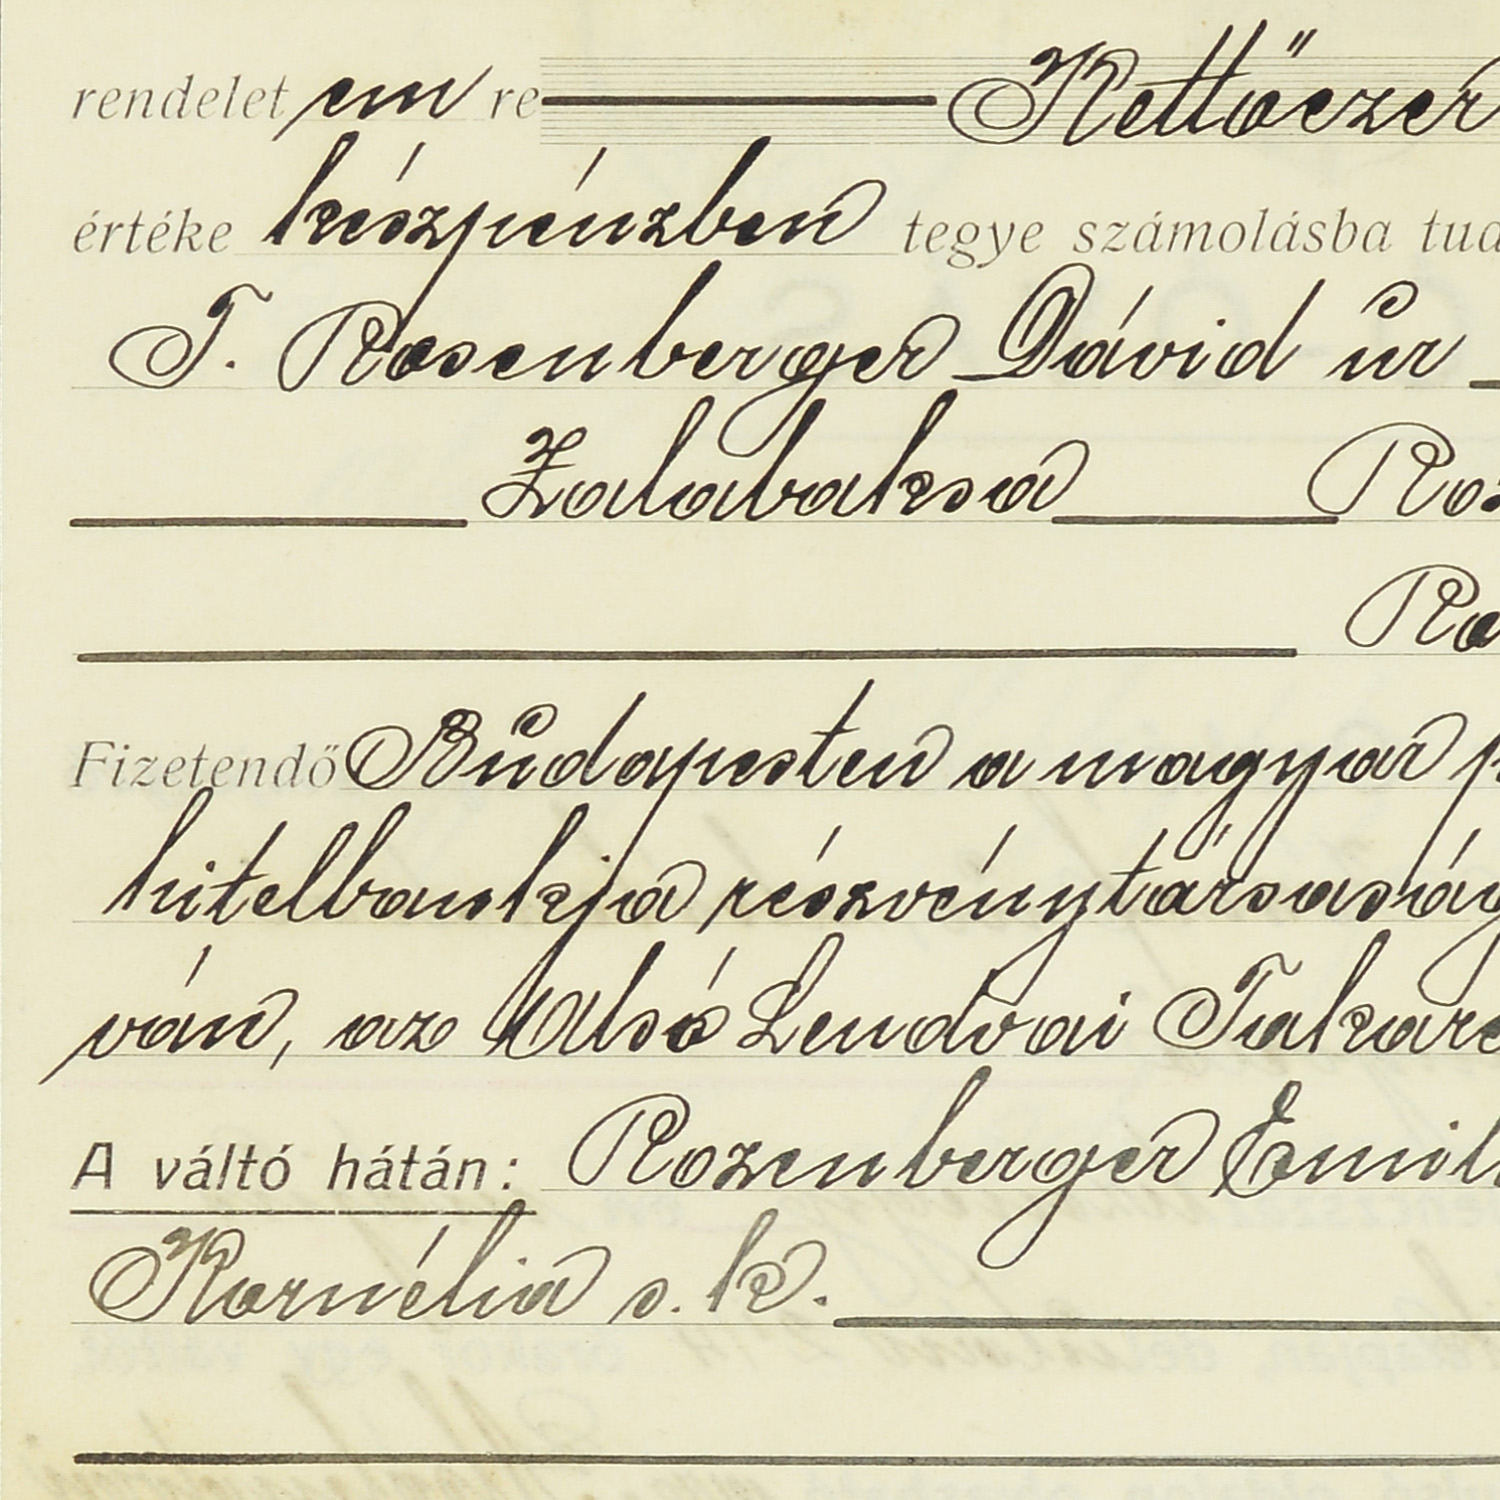 rendelet em re Kettőezer
értéke készpénzben tegye számolásba tud
T. Rosenberger Dávid úr
Zalabaksa Roz
Ro
Fizetendő Budapesten a magyar p
hitelbankja részvénytársaság
ván, az Alsó Lendvai Takaré
A váltó hátán: Rozenberger Emil
Kornélia s. k.